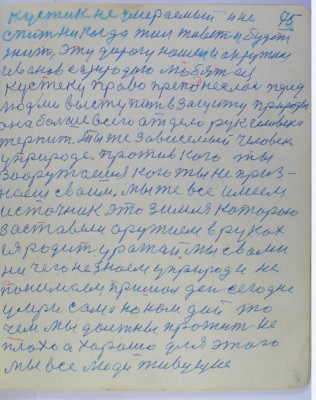 кустик не умираемый и не 95
спит никогда жил так он и будет
жить, эту дорогу нашему
Иванов с природою любят
кустеку право преподнеслося перед
людми выступить в защиту природы
она больше всего от дело рук человека
терпит. Ты же зависемый человек
у природе. против кого ты
вооружился кого ты не приз-
наеш своим. мы же все имеем
источник это земля которою
заставили оружием в руках
ея родит уражай мы с вами
ни чего не знаем у природи не
понимаем пришол ден сегодне
умри само на ном дай то
чем мы должны прожит не
плохо а харашо для этого
мы все люди живущие